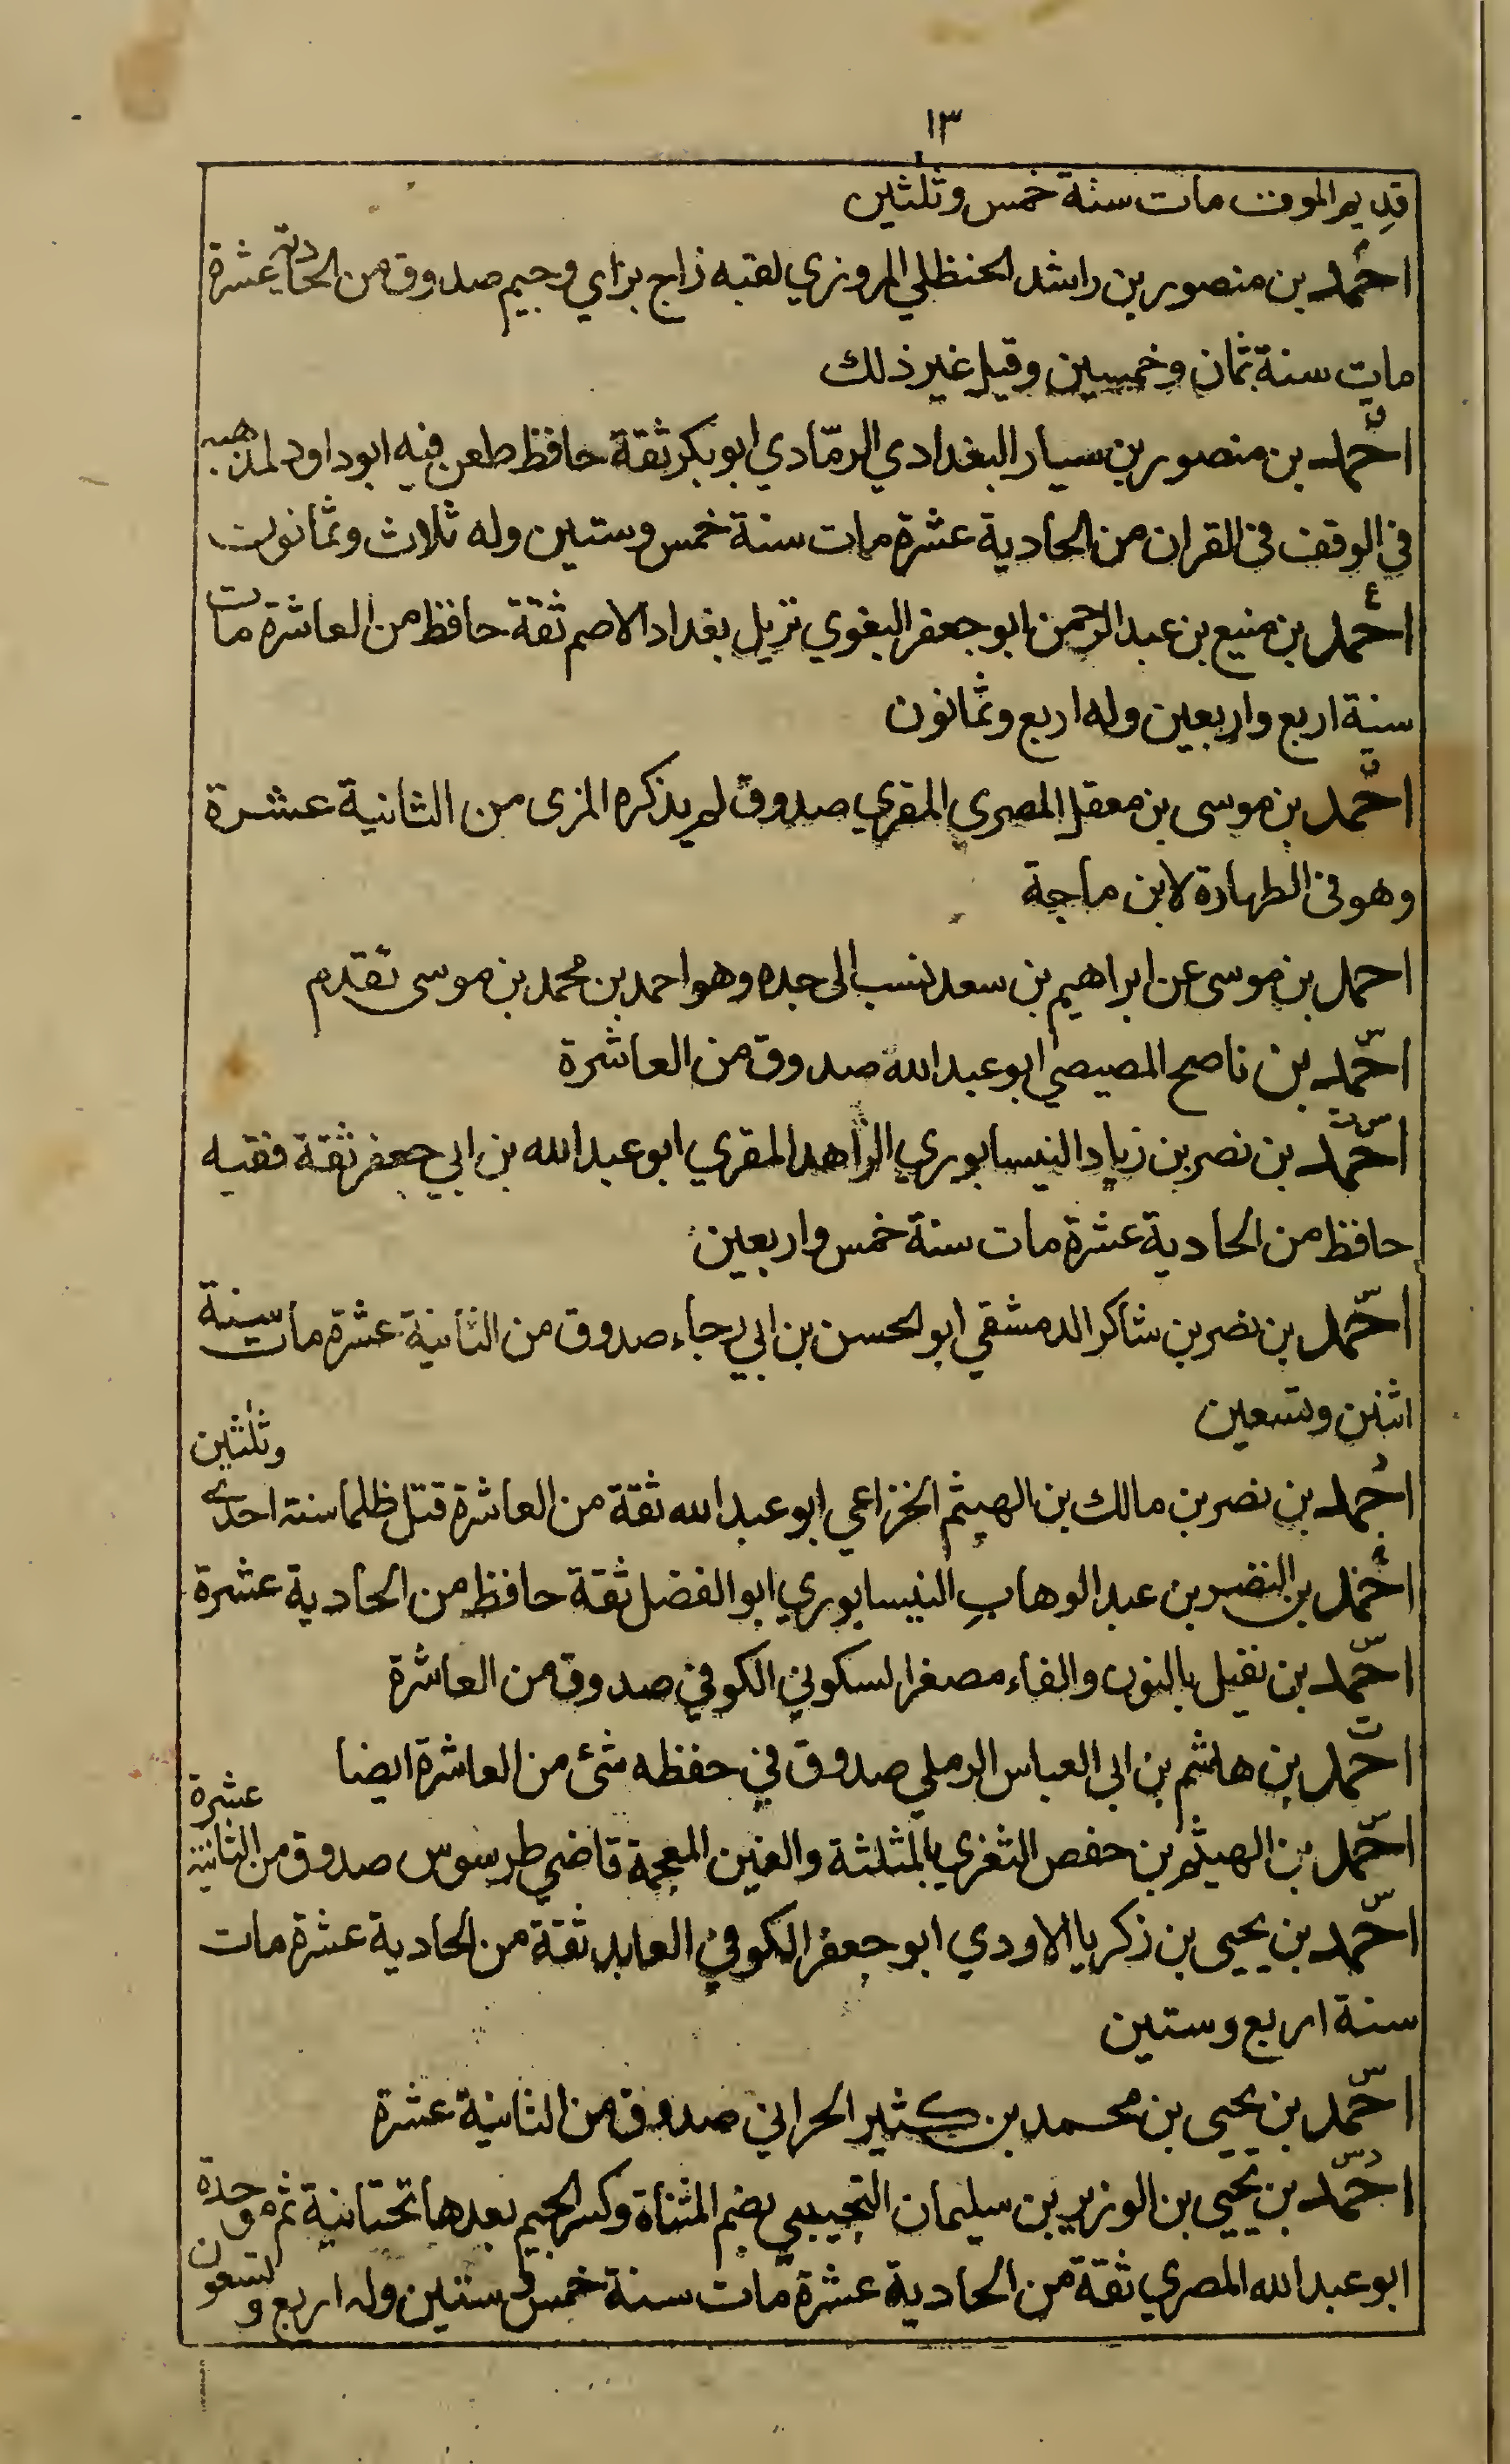 ١٣
قديم الموت مات سنة خمس وثلثين
احمد بن منصور بن راشد الحنظلي المروزي لقبه زاج بزاي وجيم صدوق من الحادية عشرة
مات سنة ثمان وخمسين وقيل غير ذلك
ق
احمد بن منصور بن سيار البغدادي الرمّادي ابو بكر ثقة حافظ طعن فيه ابو داود لمذهبه
في الوقف في القران من الحادية عشرة مات سنة خمس وستين وله ثلاث وثمانون
ع
احمد بن منيع بن عبد الرحمن ابو جعفر البغوي نزيل بغداد الاصم ثقة حافظ من العاشرة مات
سنة اربع واربعين وله اربع وثمانون
ق
احمد بن موسى بن معقل المصري المقري صدوق لم يذكره المزى من الثانية عشرة
وهو في الطهارة لابن ماجة
احمد بن موسى عن ابراهيم بن سعد نسب الى جده وهو احمد بن محمد بن موسى تقدم
س
احمد بن ناصح المصيصي ابو عبد الله صدوق من العاشرة
ت س
احمد بن نصر بن زياد النيسابوري الزاهد المقري ابو عبد الله بن ابي جعفر ثقة فقيه
حافظ من الحادية عشرة مات سنة خمس واربعين
س
احمد بن نصر بن شاكر الدمشقي ابو الحسن بن ابي رجاء صدوق من الثانية عشرة مات سنة
اثنين وتسعين
د
احمد بن نصر بن مالك بن الهيثم الخزاعي ابو عبد الله ثقة من العاشرة قتل ظلما سنة احدى وثلثين
خ
احمد بن النضر بن عبد الوهاب النيسابوري ابو الفضل ثقة حافظ من الحادية عشرة
س
احمد بن نفيل بالنون والفاء مصغرا لسكوني الكوفي صدوق من العاشرة
احمد بن هاشم بن ابي العباس الرملي صدوق في حفظه شئ من العاشرة ايضا
س
احمد بن الهيثم بن حفص الثغري بالمثلثة والغين المعجمة قاضي طرسوس صدوق من الثانية عشرة
س
احمد بن يحيى بن زكريا الاودي ابو جعفر الكوفي العابد ثقة من الحادية عشرة مات
سنة اربع وستين
س
احمد بن يحيى بن محمد بن كثير الحراني صدوق من الثانية عشرة
د س
احمد بن يحيى بن الوزير بن سليمان التجيبي بضم المثناة وكسر الجيم بعدها تحتانية ثم موحدة
ابو عبد الله المصري ثقة من الحادية عشرة مات سنة خمس وستين وله اربع وتسعون